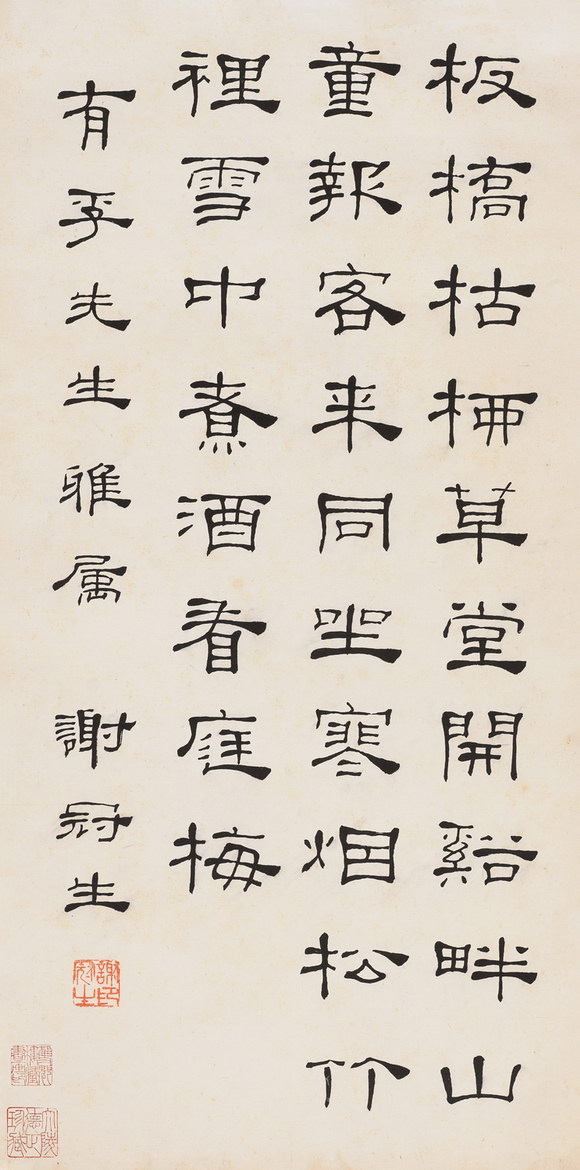 板橋枯柳草堂開谿畔山
童報客来同坐寒烟松竹
裡雪中煮酒看庭梅
有孚先生雅属 謝冠生
謝印冠生